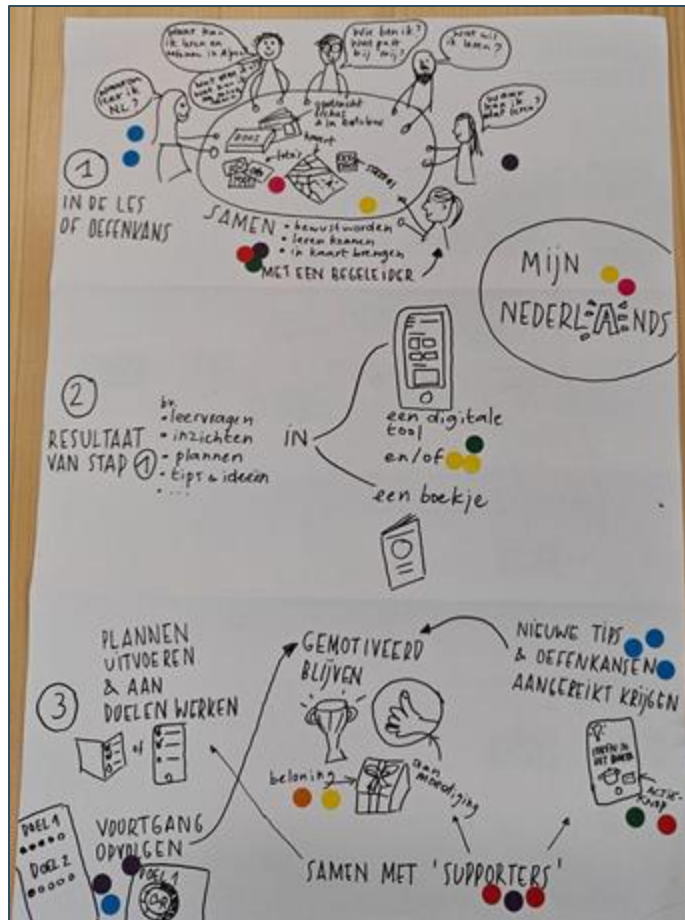 Waar kan
ik leren en
oefenen in
Wie ben ik?
Wat past
bij mij?
Wat wil
ik leren?
Waarom
leer ik
NL?
Waar
kan ik
dat leren?
opdracht
fiches
& in
DOOS
kaart
foto's
1
IN DE LES
OF OEFENKANS
SAMEN
• bewustworden
• leren kennen
• in kaart brengen
MET EEN BEGELEIDER
MIJN
NEDERLANDS
2
RESULTAAT
VAN STAP 1
bv.
• leervragen
• inzichten
• plannen
• tips & ideeën
• ...
IN
een digitale
tool
en/of
een boekje
3
PLANNEN
UITVOEREN
& AAN
DOELEN WERKEN
of
GEMOTIVEERD
BLIJVEN
NIEUWE TIPS
& OEFENKANSEN
AANGEREIKT KRIJGEN
beloning
aan
moediging
ACTIE-
KNOP
DOEL 1
DOEL 2
VOORTGANG
OPVOLGEN
DOEL 1
SAMEN MET 'SUPPORTERS'